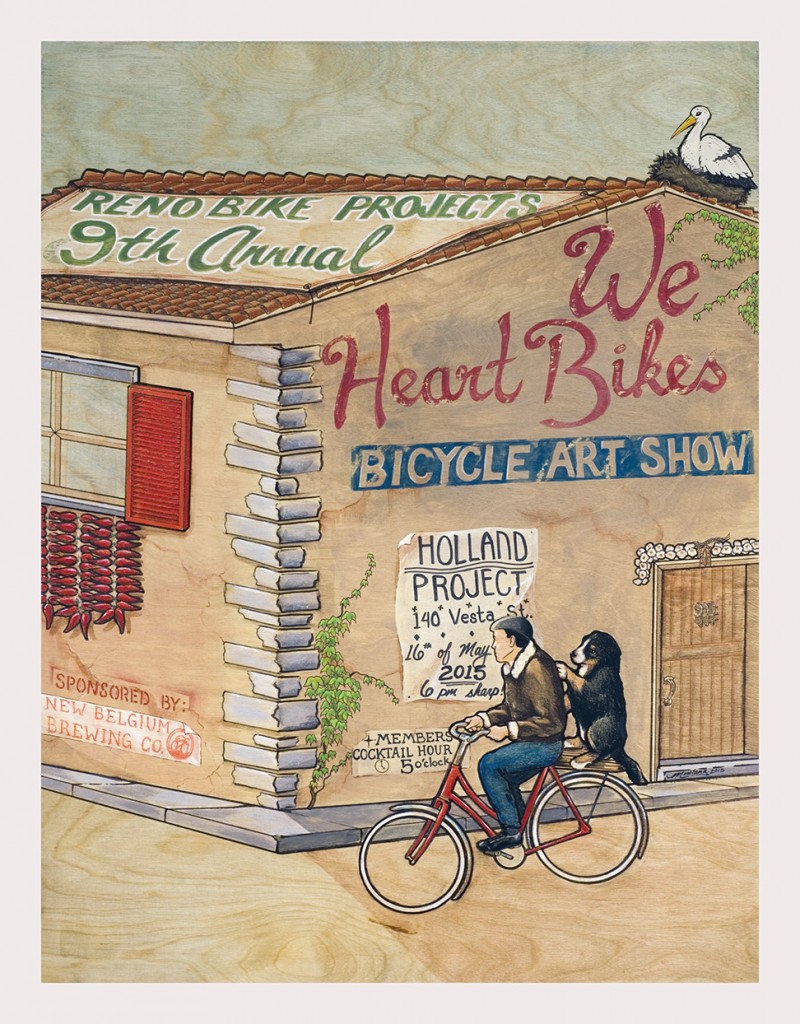 RENO BIKE PROJECTS
9th Annual
We
Heart Bikes
BICYCLE ART SHOW
HOLLAND
PROJECT
140 Vesta St.
16th of May
2015
6 pm sharp!
+ MEMBERS
COCKTAIL HOUR
5 o'clock
SPONSORED BY:
NEW BELGIUM
BREWING CO.